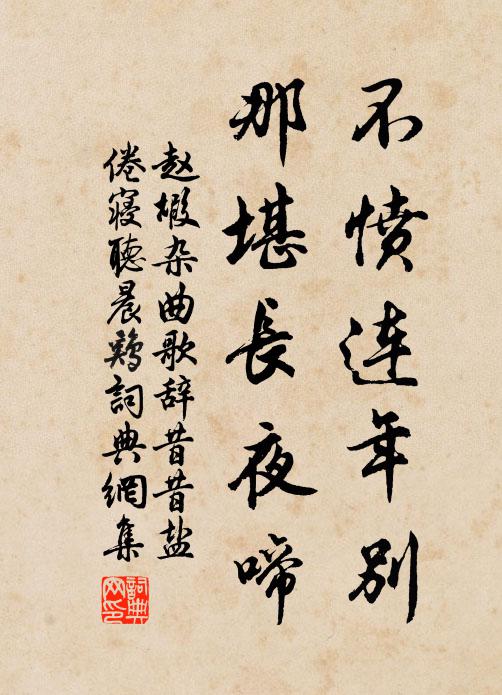 不愤连年别
那堪長夜啼
赵嘏杂曲歌辞昔昔盐
倦寝聽晨鸡詞典網集
詞典
网印